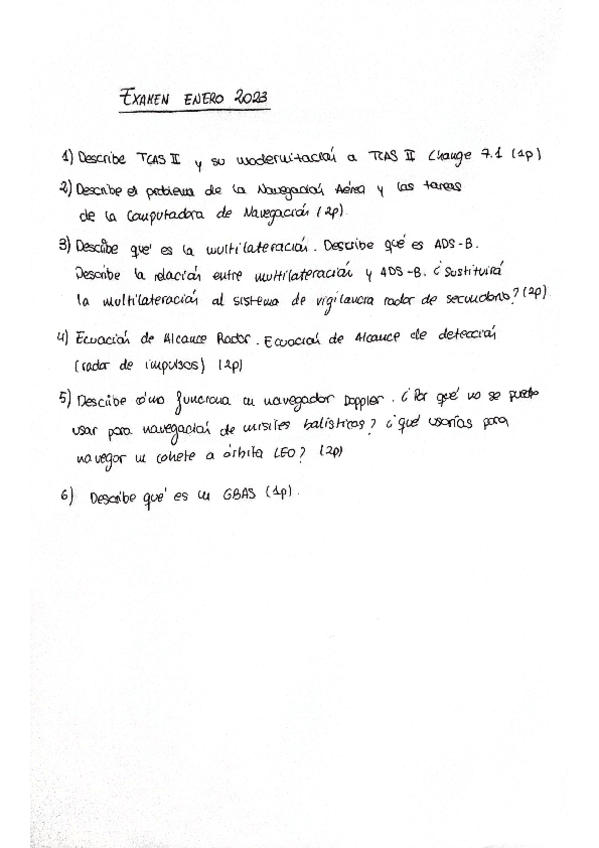 EXAMEN ENERO 2023
1) Describe TCAS II y su modernización a TCAS II Change 7.1 (1p)
2) Describe el problema de la Navegación Aérea y las tareas
de la Computadora de Navegación (2p).
3) Describe qué es la multilateración. Describe qué es ADS-B.
Describe la relación entre multilateración y ADS-B. ¿Sustituirá
la multilateración al sistema de vigilancia radar de secundario? (2p)
4) Ecuación de Alcance Radar. Ecuación de Alcance de detección
(radar de impulsos) (2p)
5) Describe cómo funciona un navegador Doppler. ¿Por qué no se puede
usar para navegación de misiles balísticos? ¿qué usarías para
navegar un cohete a órbita LEO? (2p)
6) Describe qué es un GBAS (1p).